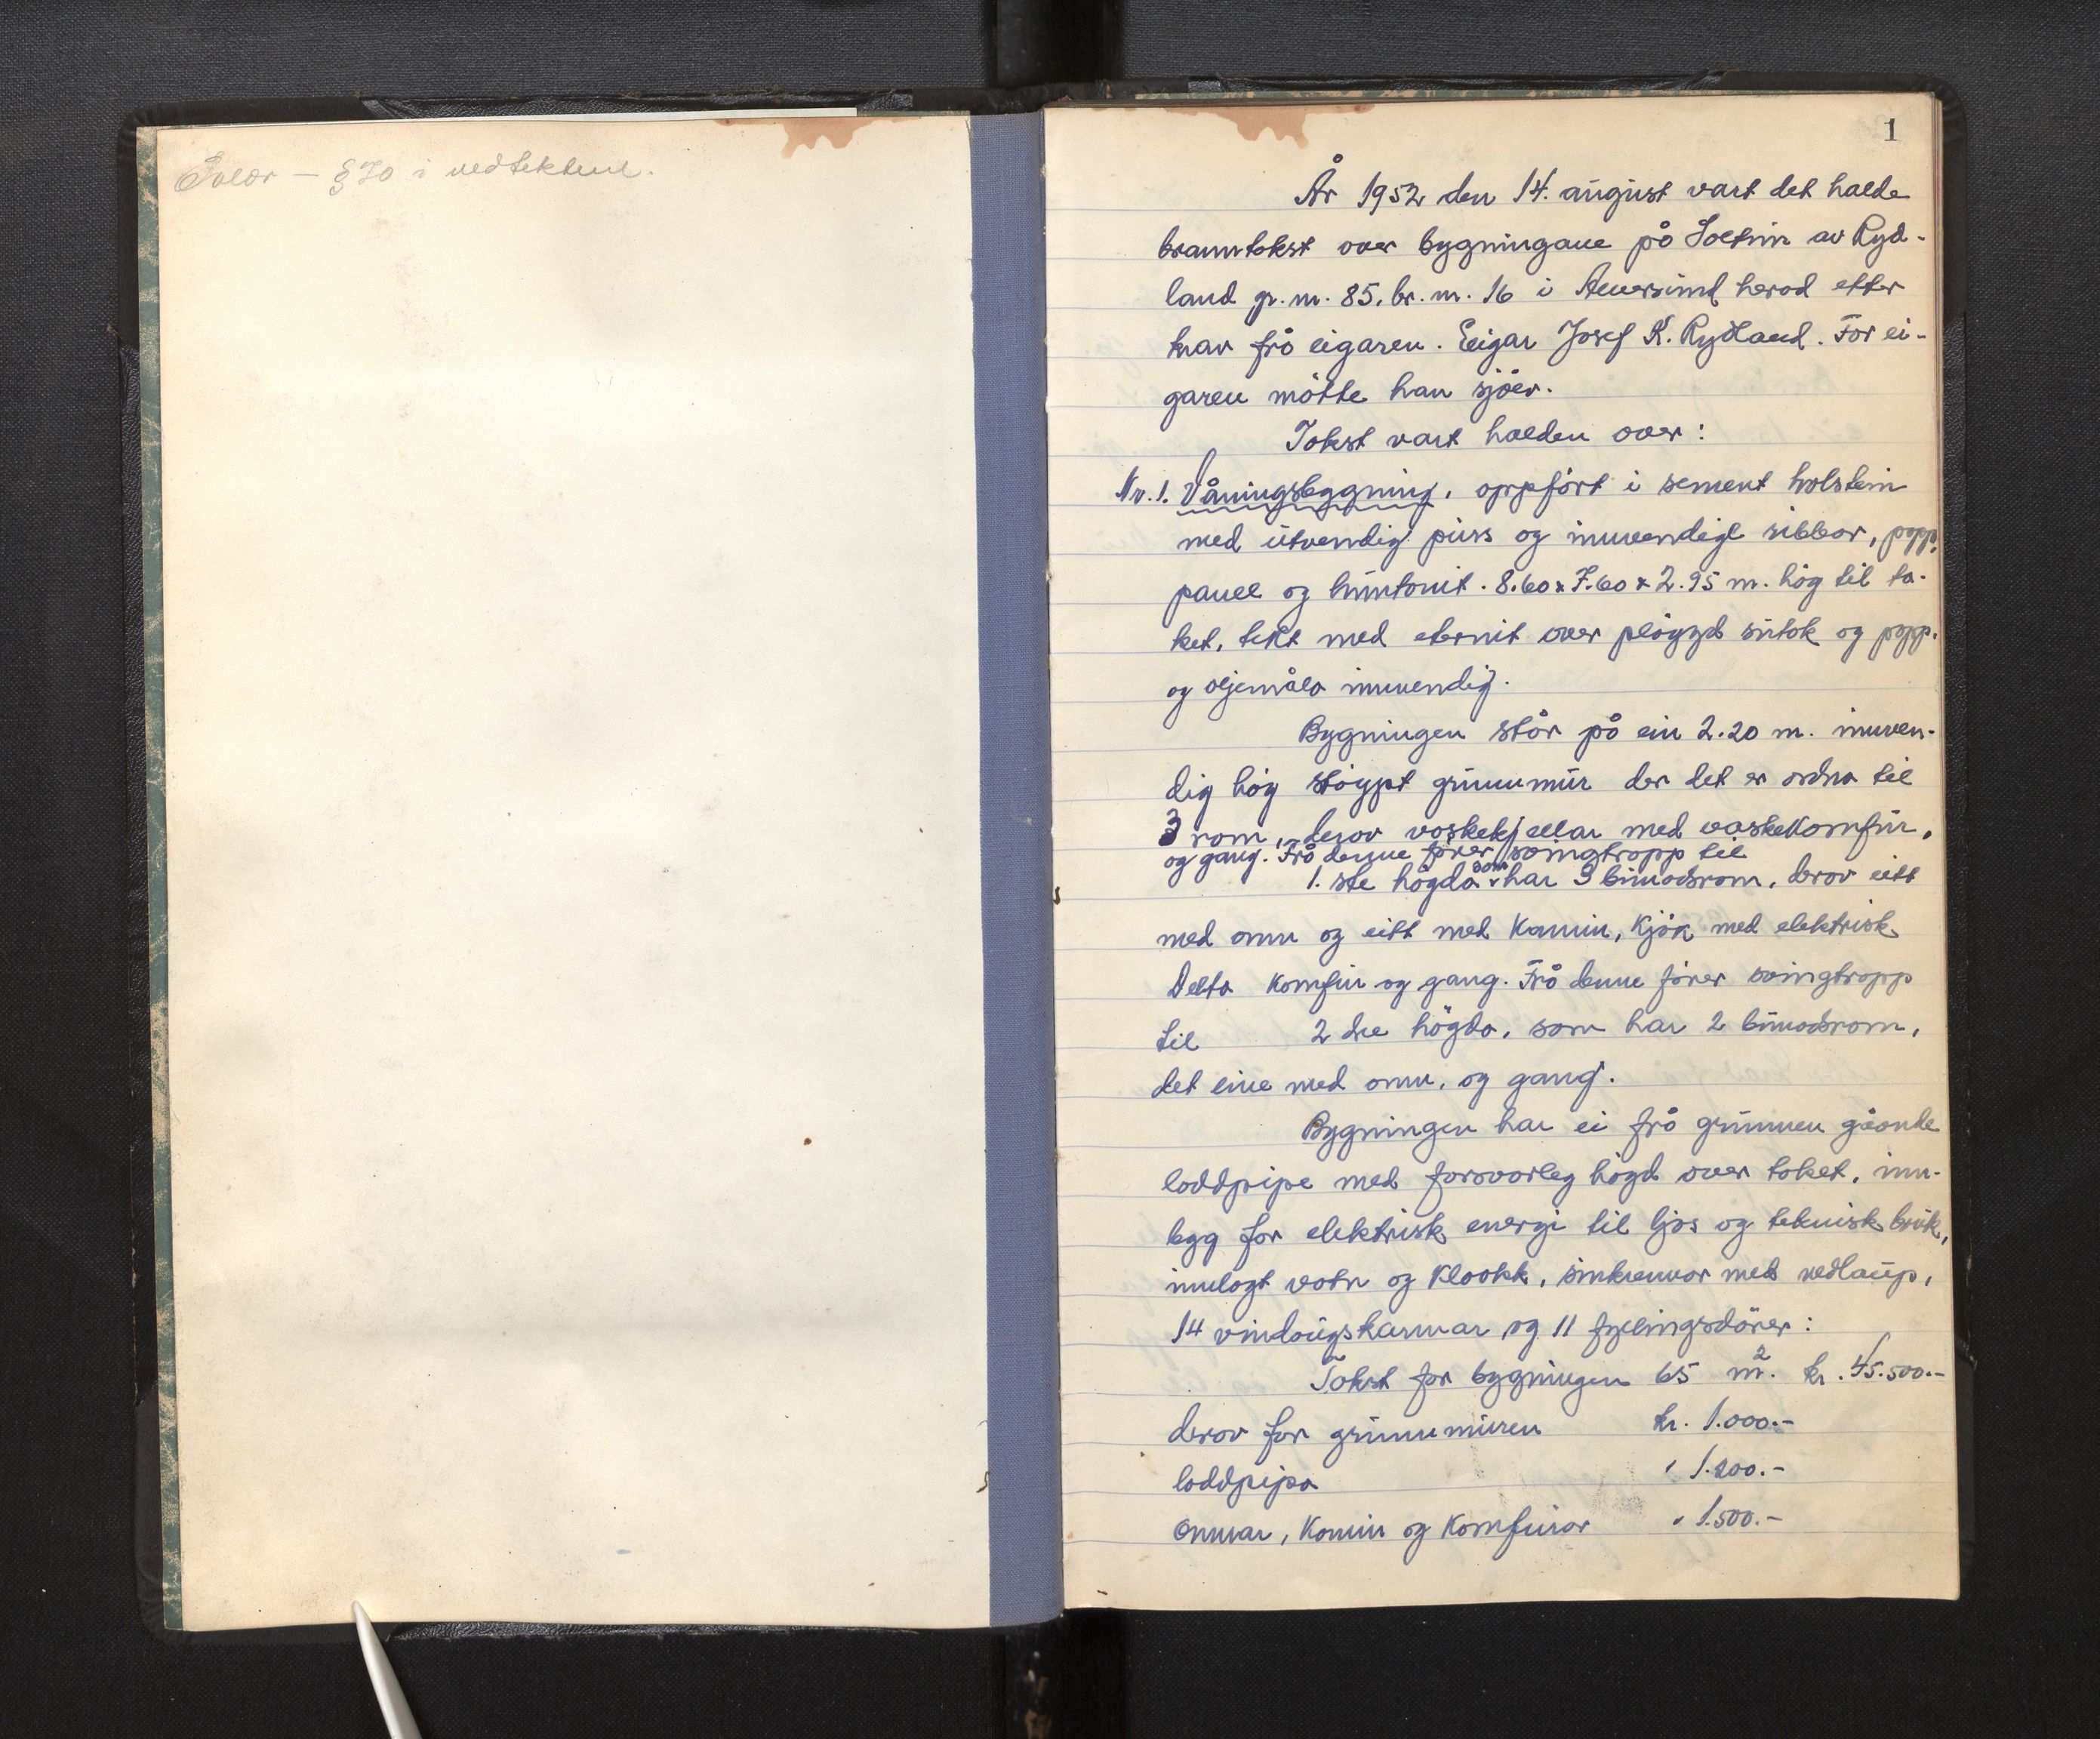 – § 70 i vedtektene.
1
År 1952 den 14. august vart det halde
branntakst over bygningane på Soltun av Ryd-
land gr. nr. 85, br. nr. 16 i Alversund herad etter
krav frå eigaren. Eigar Josef K. Rydland. For ei-
garen møtte han sjølv.
Takst vart halden over:
Nr. 1. Våningsbygning, oppført i sement holstein
med utvendig puss og innvendigt ribbor, papp,
panel og huntonit. 8.60 x 7.60 x 2.95 m. høg til ta-
ket, tekt med eternit over pløygd sutak og papp.
og oljemåla innvendig.
Bygningen står på ein 2.20 m. innven-
dig høg støypt grunnmur der det er ordna til
3 rom, derav vaskekjellar med vaskekomfur,
og gang. Frå denne fører svingtrapp til
1. ste høgda som har 3 bunadsrom, derav eitt
med omn og eitt med kamin, kjøk med elektrisk
Delta komfur og gang. Frå denne fører svingtrapp
til 2 dre høgda, som har 2 bunadsrom,
det eine med omn, og gang.
Bygningen har ei frå grunnen gåande
loddpipe med forsvarleg høgd over taket, inn-
lagg for elektrisk energi til ljos og teknisk bruk,
innlagt vatn og kloakk, sinkrennor med nedlaup,
14 vindaugskarmar og 11 fyllingsdører:
Takst for bygningen 65 m². kr. 45.500.-
derav for grunnmuren kr. 1.000.-
loddpipa " 1.200.-
Omnar, kamin og komfurar " 1.500.-